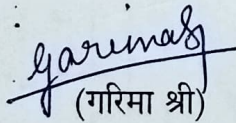 GarimaS
(गरिमा श्री)